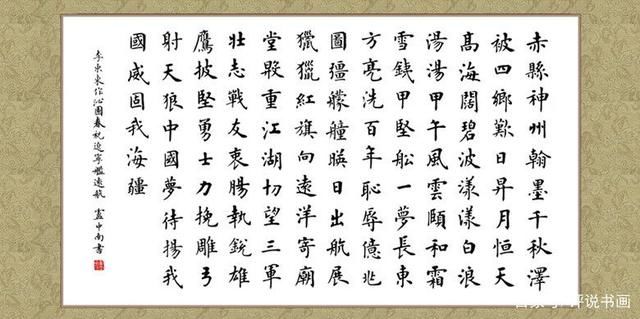 赤縣神州翰墨千秋澤
被四鄉歎日昇月恒天
高海闊碧波漾漾白浪
湯湯甲午風雲頤和霜
雪銕甲堅船一夢長東
方亮洗百年恥辱億兆
圖彊艨艟暎日出航展
獵獵紅旗向遠洋寄廟
堂殷重江湖切望三軍
壯志戰友衷腸執銳雄
鷹披堅勇士力挽雕弓
射天狼中國夢待揚我
國威固我海疆
李東東作沁園春祝遼寧艦遠航 盧中南書
百家号/评说书画